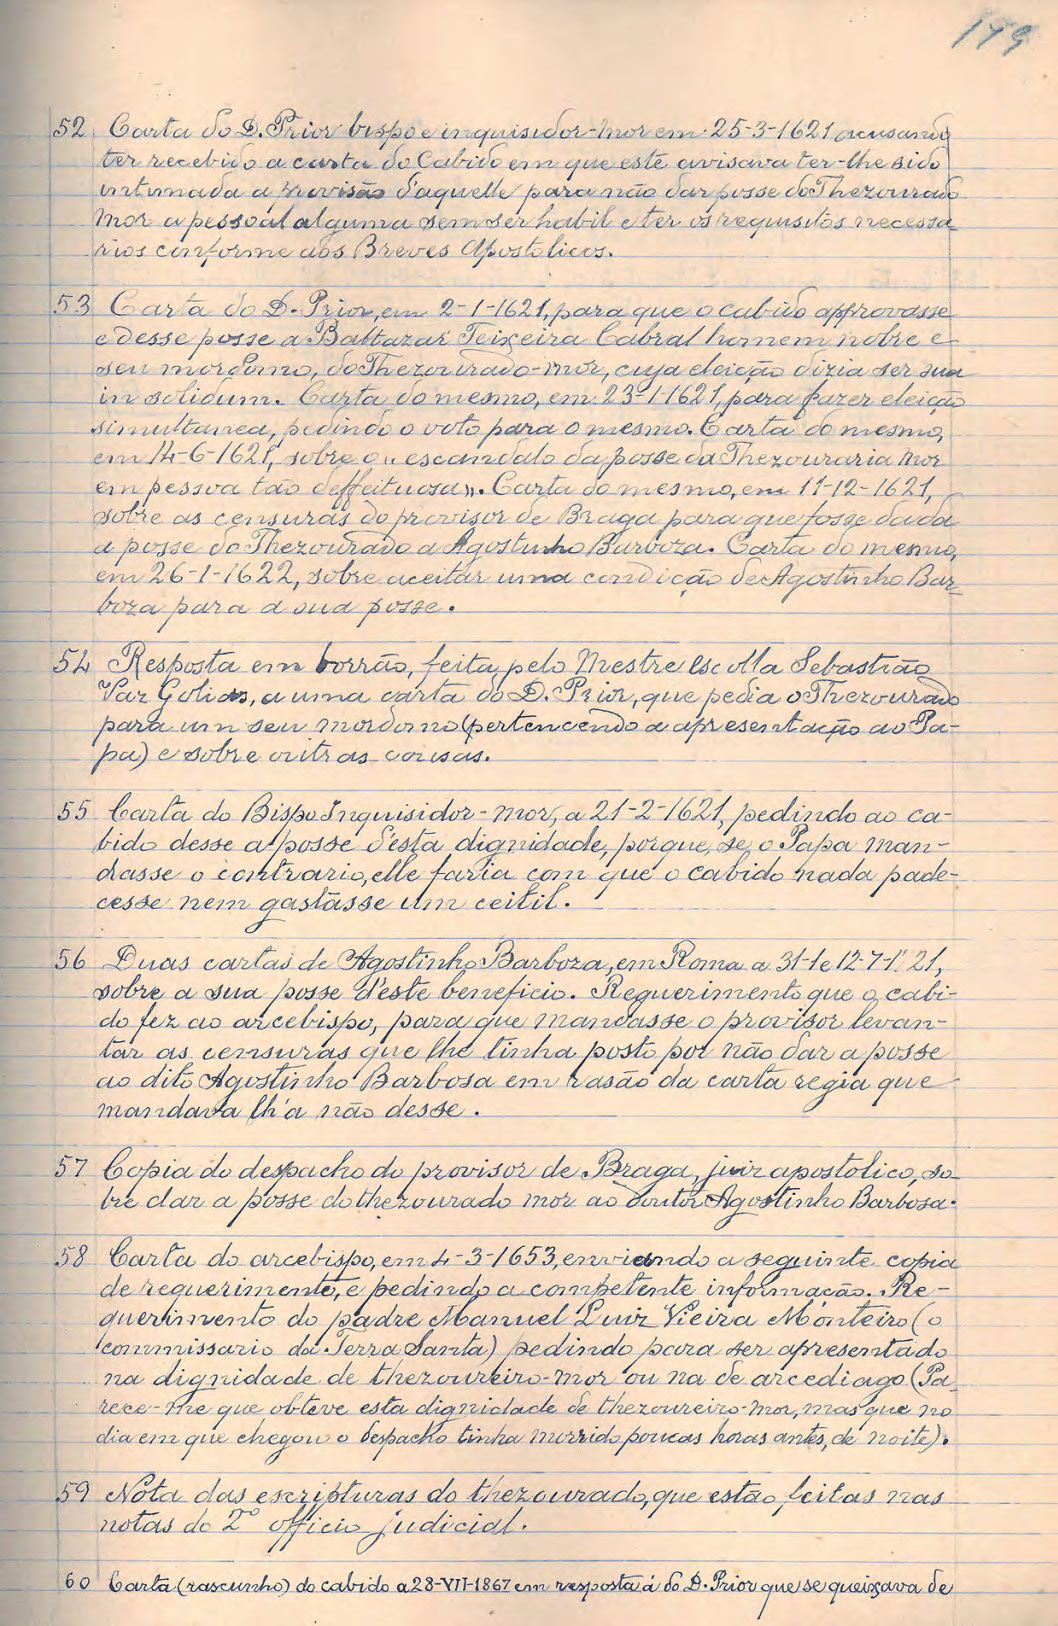 179
52 Carta do D. Prior bispo e inquisidor-mor em 25-3-1621 acusando
ter recebido a carta do Cabido em que este avisava ter-lhe sido
intimada a provisão d'aquelle para não dar posse do Thezourado
mor a pessoa alguma sem ser habil e ter os requisitos necessa-
rios conforme aos Breves Apostolicos.
53 Carta do D. Prior, em 2-1-1621, para que o cabido approvasse
e desse posse a Baltazar Teixeira Cabral homem nobre e
seu mordomo, do Thezourado-mor, cuja eleição dizia ser sua
in solidum. Carta do mesmo, em 23-1-1621, para fazer eleição
simultanea, pedindo o voto para o mesmo. Carta do mesmo,
em 14-6-1621, sobre o "escandalo da posse da Thezouraria mor
em pessoa tão deffeituosa". Carta do mesmo, em 11-12-1621,
sobre as censuras do provisor de Braga para que fosse dada
a posse do Thezourado a Agostinho Barboza. Carta do mesmo,
em 26-1-1622, sobre aceitar uma condição de Agostinho Bar-
boza para a sua posse.
54 Resposta em borrão, feita pelo Mestre escolla Sebastião
Vaz Golias, a uma carta do D. Prior, que pedia o Thezourado
para um seu mordomo (pertencendo a apresentação ao Pa-
pa) e sobre outras cousas.
55 Carta do Bispo Inquisidor-mor, a 21-2-1621, pedindo ao ca-
bido desse a posse d'esta dignidade, porque, se o Papa man-
dasse o contrario, elle faria com que o cabido nada pade-
cesse nem gastasse um ceitil.
56 Duas cartas de Agostinho Barboza, em Roma a 31-1 e 12-7-1621,
sobre a sua posse d'este beneficio. Requerimento que o cabi-
do fez ao arcebispo, para que mandasse o provisor levan-
tar as censuras que lhe tinha posto por não dar a posse
ao dito Agostinho Barbosa em rasão da carta regia que
mandava lh'a não desse.
57 Copia do despacho do provisor de Braga, juiz apostolico, so-
bre dar a posse do thezourado mor ao doutor Agostinho Barbosa.
58 Carta do arcebispo, em 4-3-1653, enviando a seguinte copia
de requerimento, e pedindo a competente informação. Re-
querimento do padre Manuel Luiz Vieira Monteiro (o
commissario da Terra Santa) pedindo para ser apresentado
na dignidade de thezoureiro-mor ou na de arcediago (Pa-
rece-me que obteve esta dignidade de thezoureiro-mor, mas que no
dia em que chegou o despacho tinha morrido poucas horas antes, de noite).
59 Nota das escripturas do thezourado, que estão feitas nas
notas do 2º officio judicial.
60 Carta (rascunho) do cabido a 28-VII-1867 em resposta á do D. Prior que se queixava de